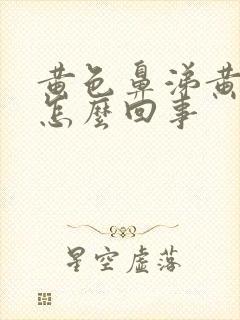 黄色鼻涕黄
怎麼回事
星空虛落